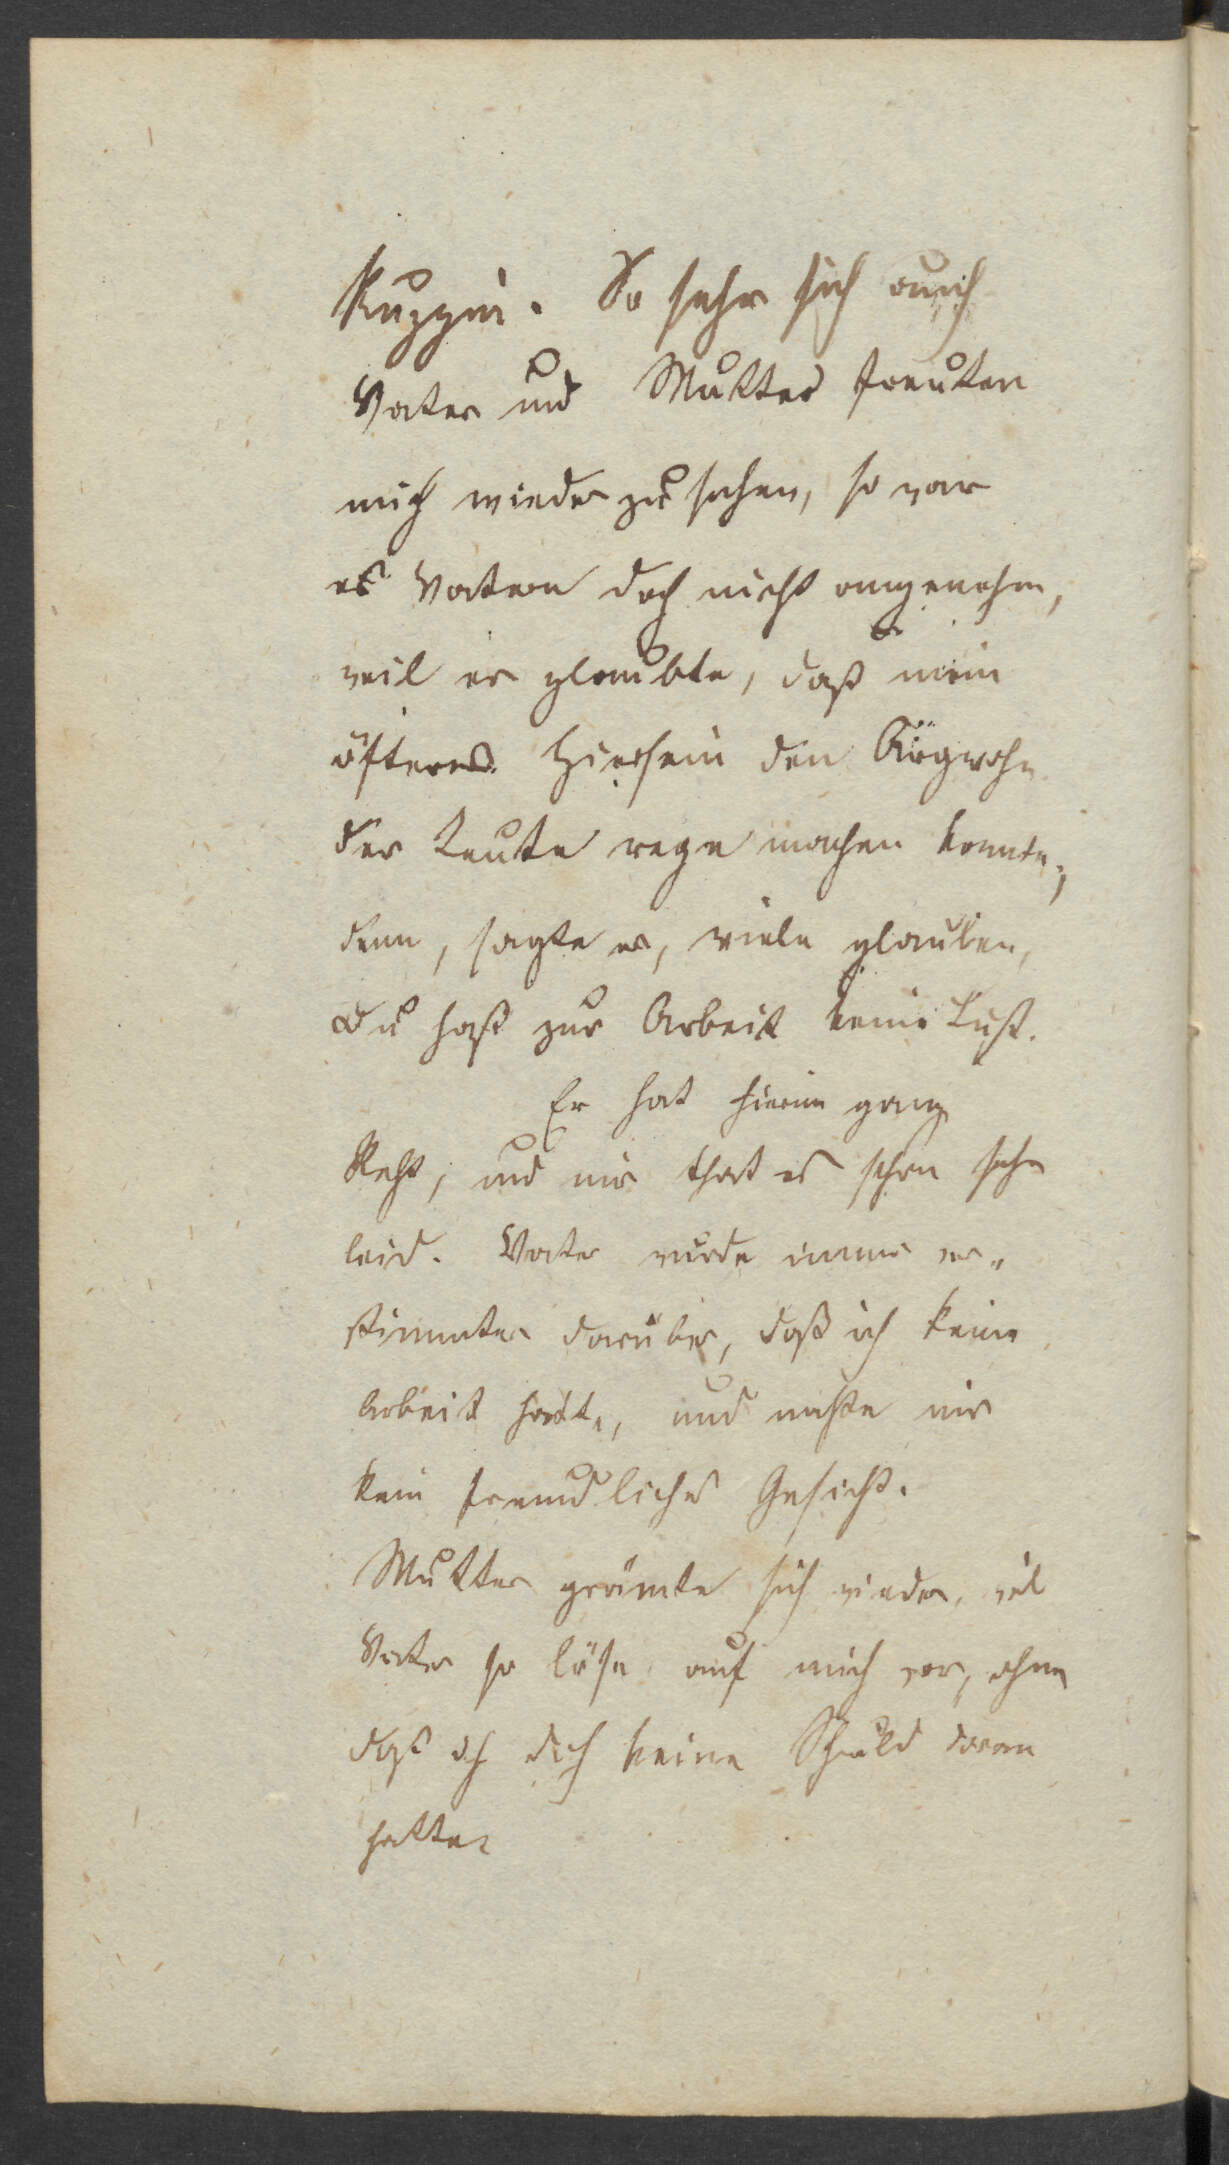 Ruppin. So sehr sich auch
Vater und Mutter freuten
mich wieder zu sehen, so war
es Vatern doch nicht angenehm,
weil er glaubte, daß mein
öfteres Hiersein den Argwohn
der Leute rege machen konnte,
denn, sagte er, viele glauben,
Du hast zur Arbeit keine Lust.
Er hat hierin ganz
Recht, und mir that es schon sehr
leid. Vater wurde immer ver-
stimmter darüber, daß ich keine
Arbeit hatte, und machte mir
kein freundliches Gesicht.
Mutter grämte sich wieder, weil
Vater so böse auf mich war, ohne
daß ich doch keine Schuld daran
hatte.